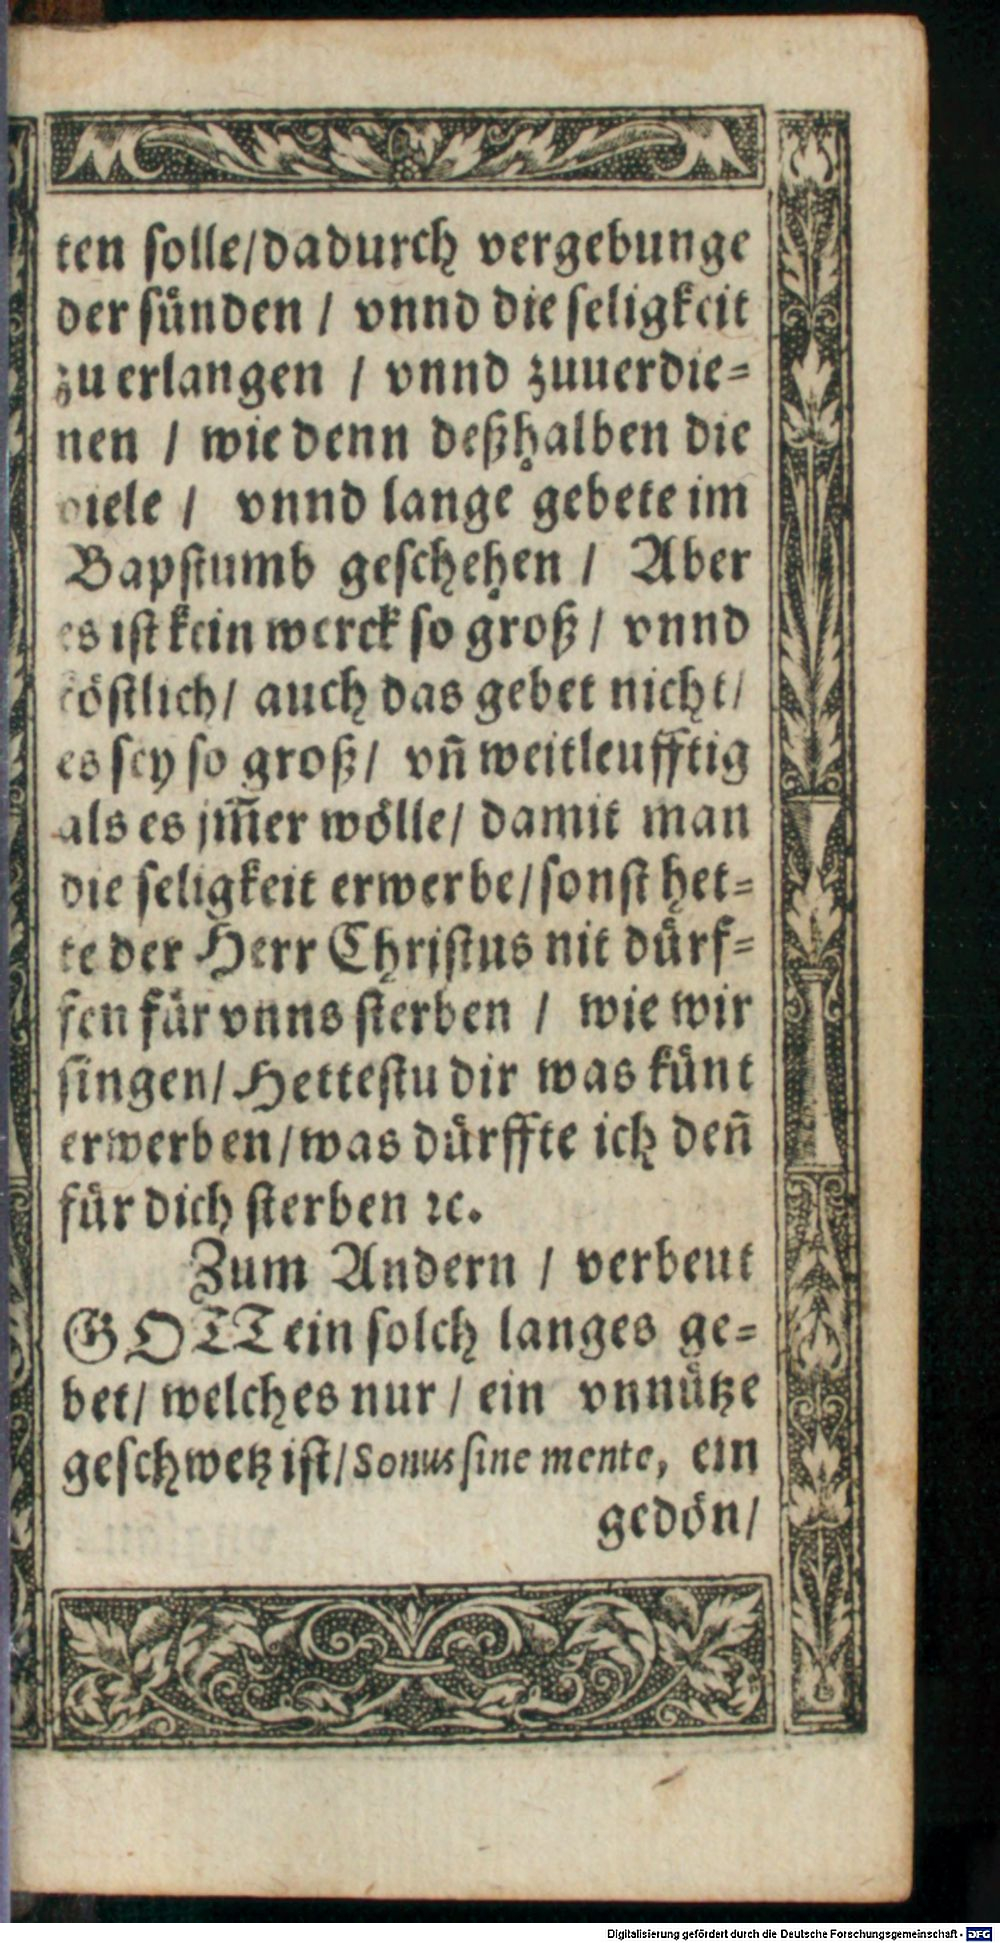 ten solle/dadurch vergebunge
der suͤnden / vnnd die seligkeit
zu erlangen / vnnd zuuerdie-
nen / wie denn deßhalben die
viele / vnnd lange gebete im
Bapstumb geschehen / Aber
es ist kein werck so groß/ vnnd
köstlich/ auch das gebet nicht/
es sey so groß/ vñ weitleufftig
als es jm̃er wölle/ damit man
die seligkeit erwerbe/sonst het-
te der Herr Christus nit duͤrf-
fen fuͤr vnns sterben / wie wir
singen/ Hettestu dir was kuͤnt
erwerben/was duͤrffte ich deñ
fuͤr dich sterben ꝛc.
Zum Andern / verbeut
GOTT ein solch langes ge-
bet/ welches nur / ein vnnuͤtze
geschwetz ist/Sonus sine mente, ein
gedön/
Digitalisierung gefördert durch die Deutsche Forschungsgemeinschaft - DFG